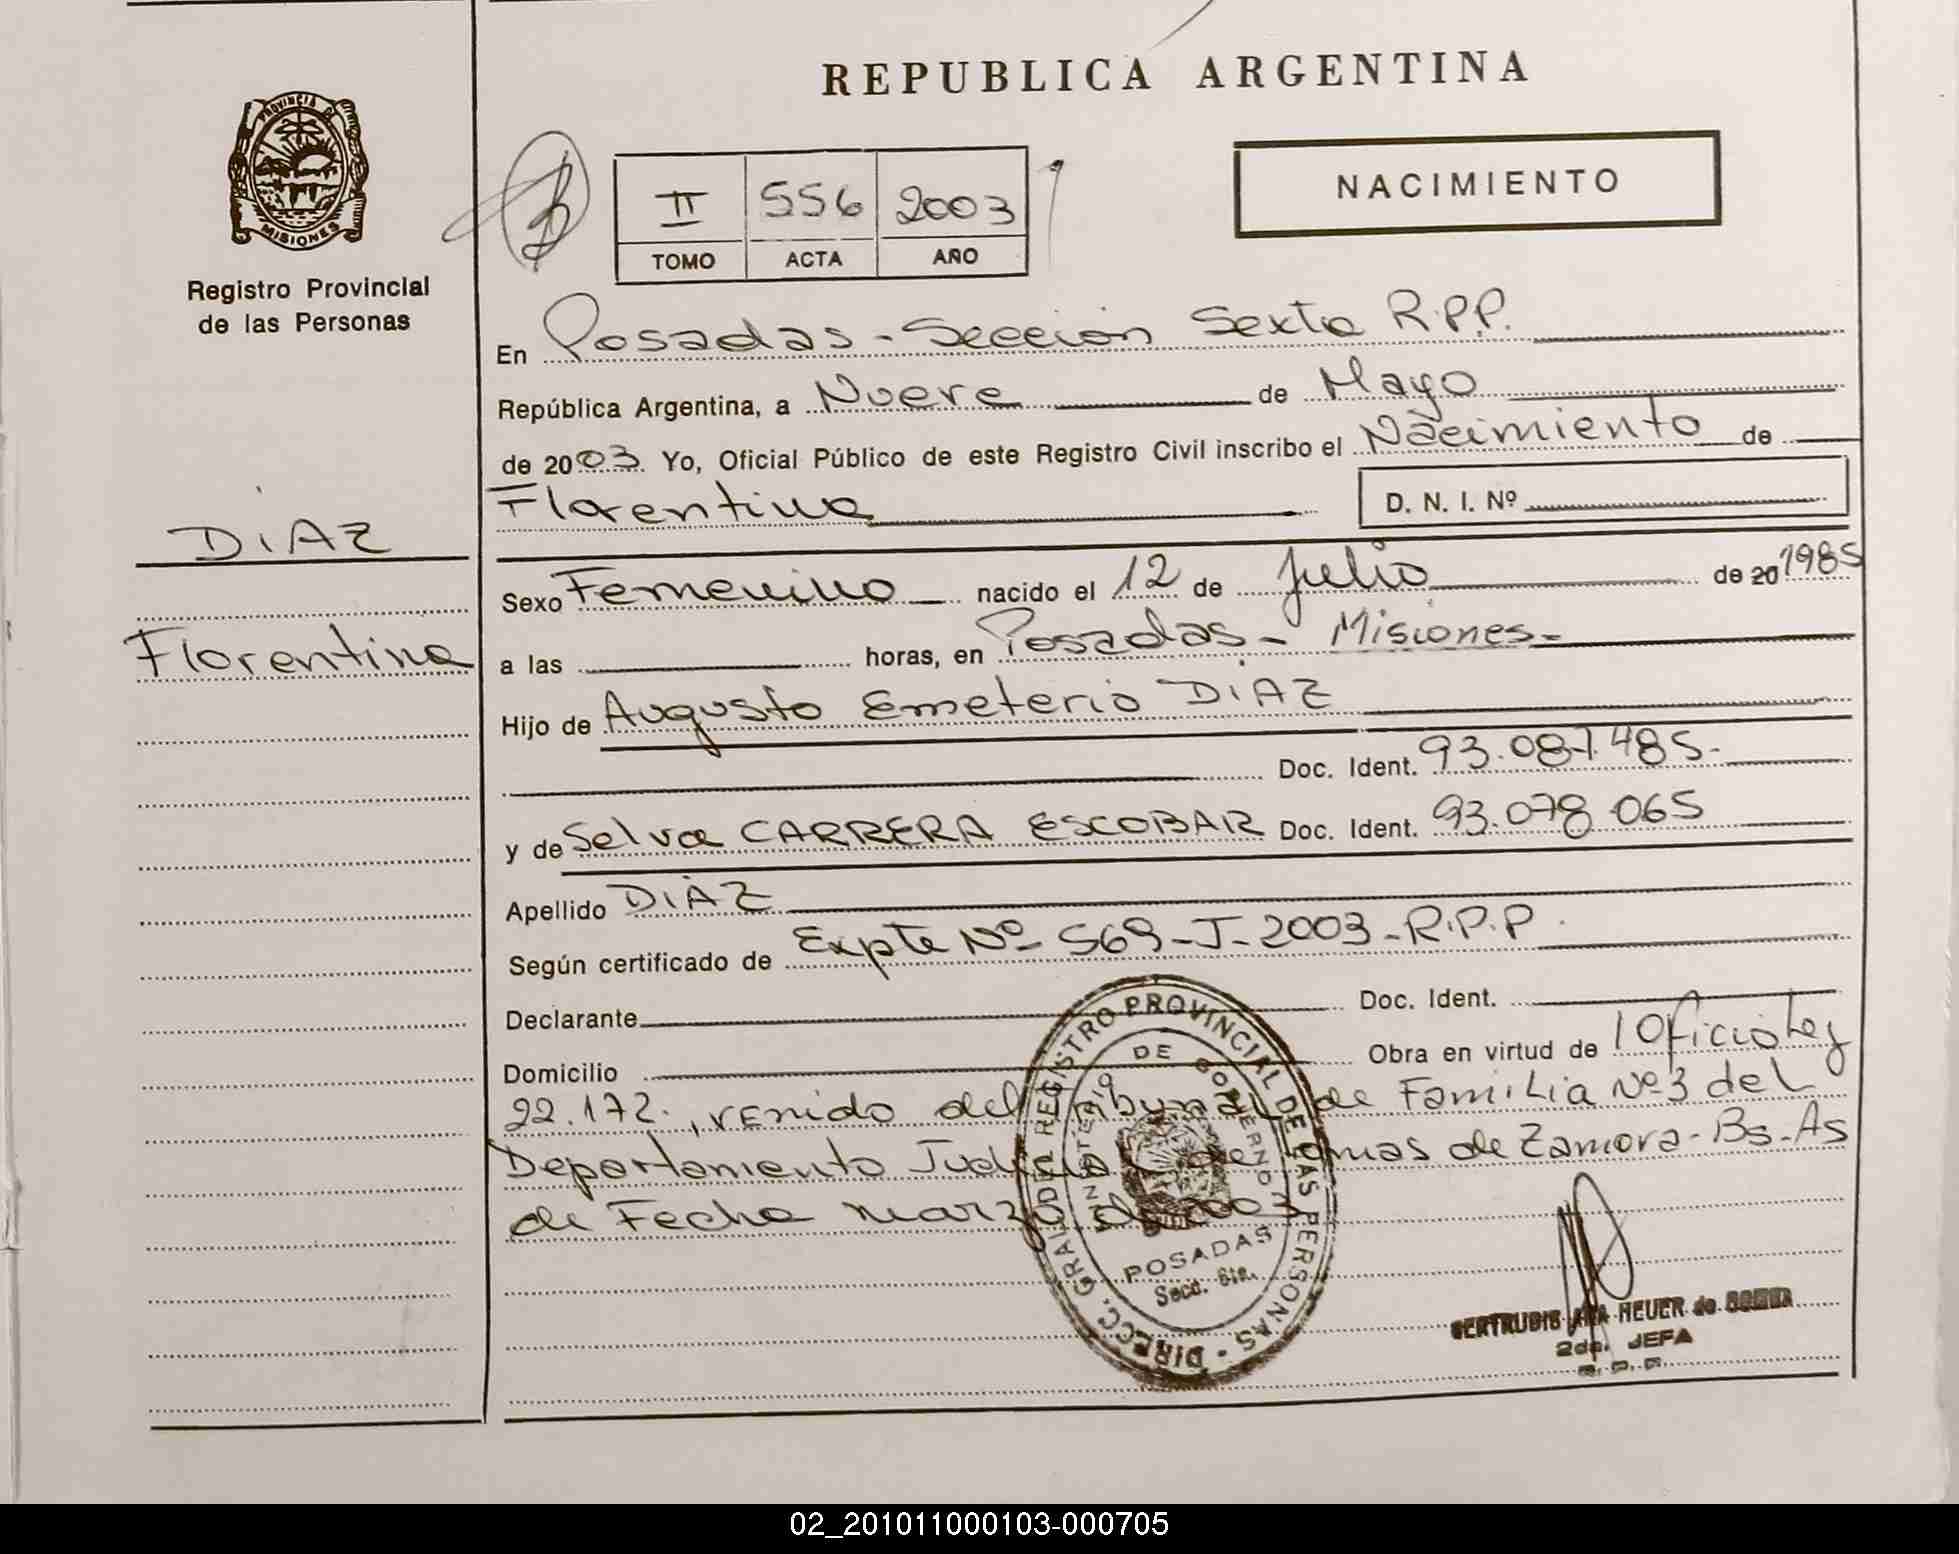 REPUBLICA ARGENTINA
PROVINCIA D
MISIONES
Registro Provincial
de las Personas
II 556 2003
TOMO ACTA AÑO
NACIMIENTO
En Posadas - Sección Sexta R.P.P.
República Argentina, a Nueve de Mayo
de 2003. Yo, Oficial Público de este Registro Civil inscribo el Nacimiento de
Florentina D. N. I. Nº
DIAZ
Sexo Femenino nacido el 12 de Julio de 20 1985
Florentina
a las horas, en Posadas - Misiones-
Hijo de Augusto Emeterio DIAZ
Doc. Ident. 93.087.485.
y de Selva CARRERA ESCOBAR Doc. Ident. 93.078 065
Apellido DIAZ
Según certificado de Expte Nº 569-J-2003-R.P.P.
Declarante Doc. Ident.
Domicilio Obra en virtud de Oficio Ley
22.172., venido del Tribunal de Familia Nº3 del
Departamento Judicial de Lomas de Zamora-Bs-As
de Fecha marzo de 2003
DIRECC. GRAL. DEL REGISTRO PROVINCIAL DE LAS PERSONAS
DE GOBIERNO
POSADAS
Secc. 6ta.
GERTRUDIS HEUER de
2da. JEFA
R. P. P.
02_201011000103-000705